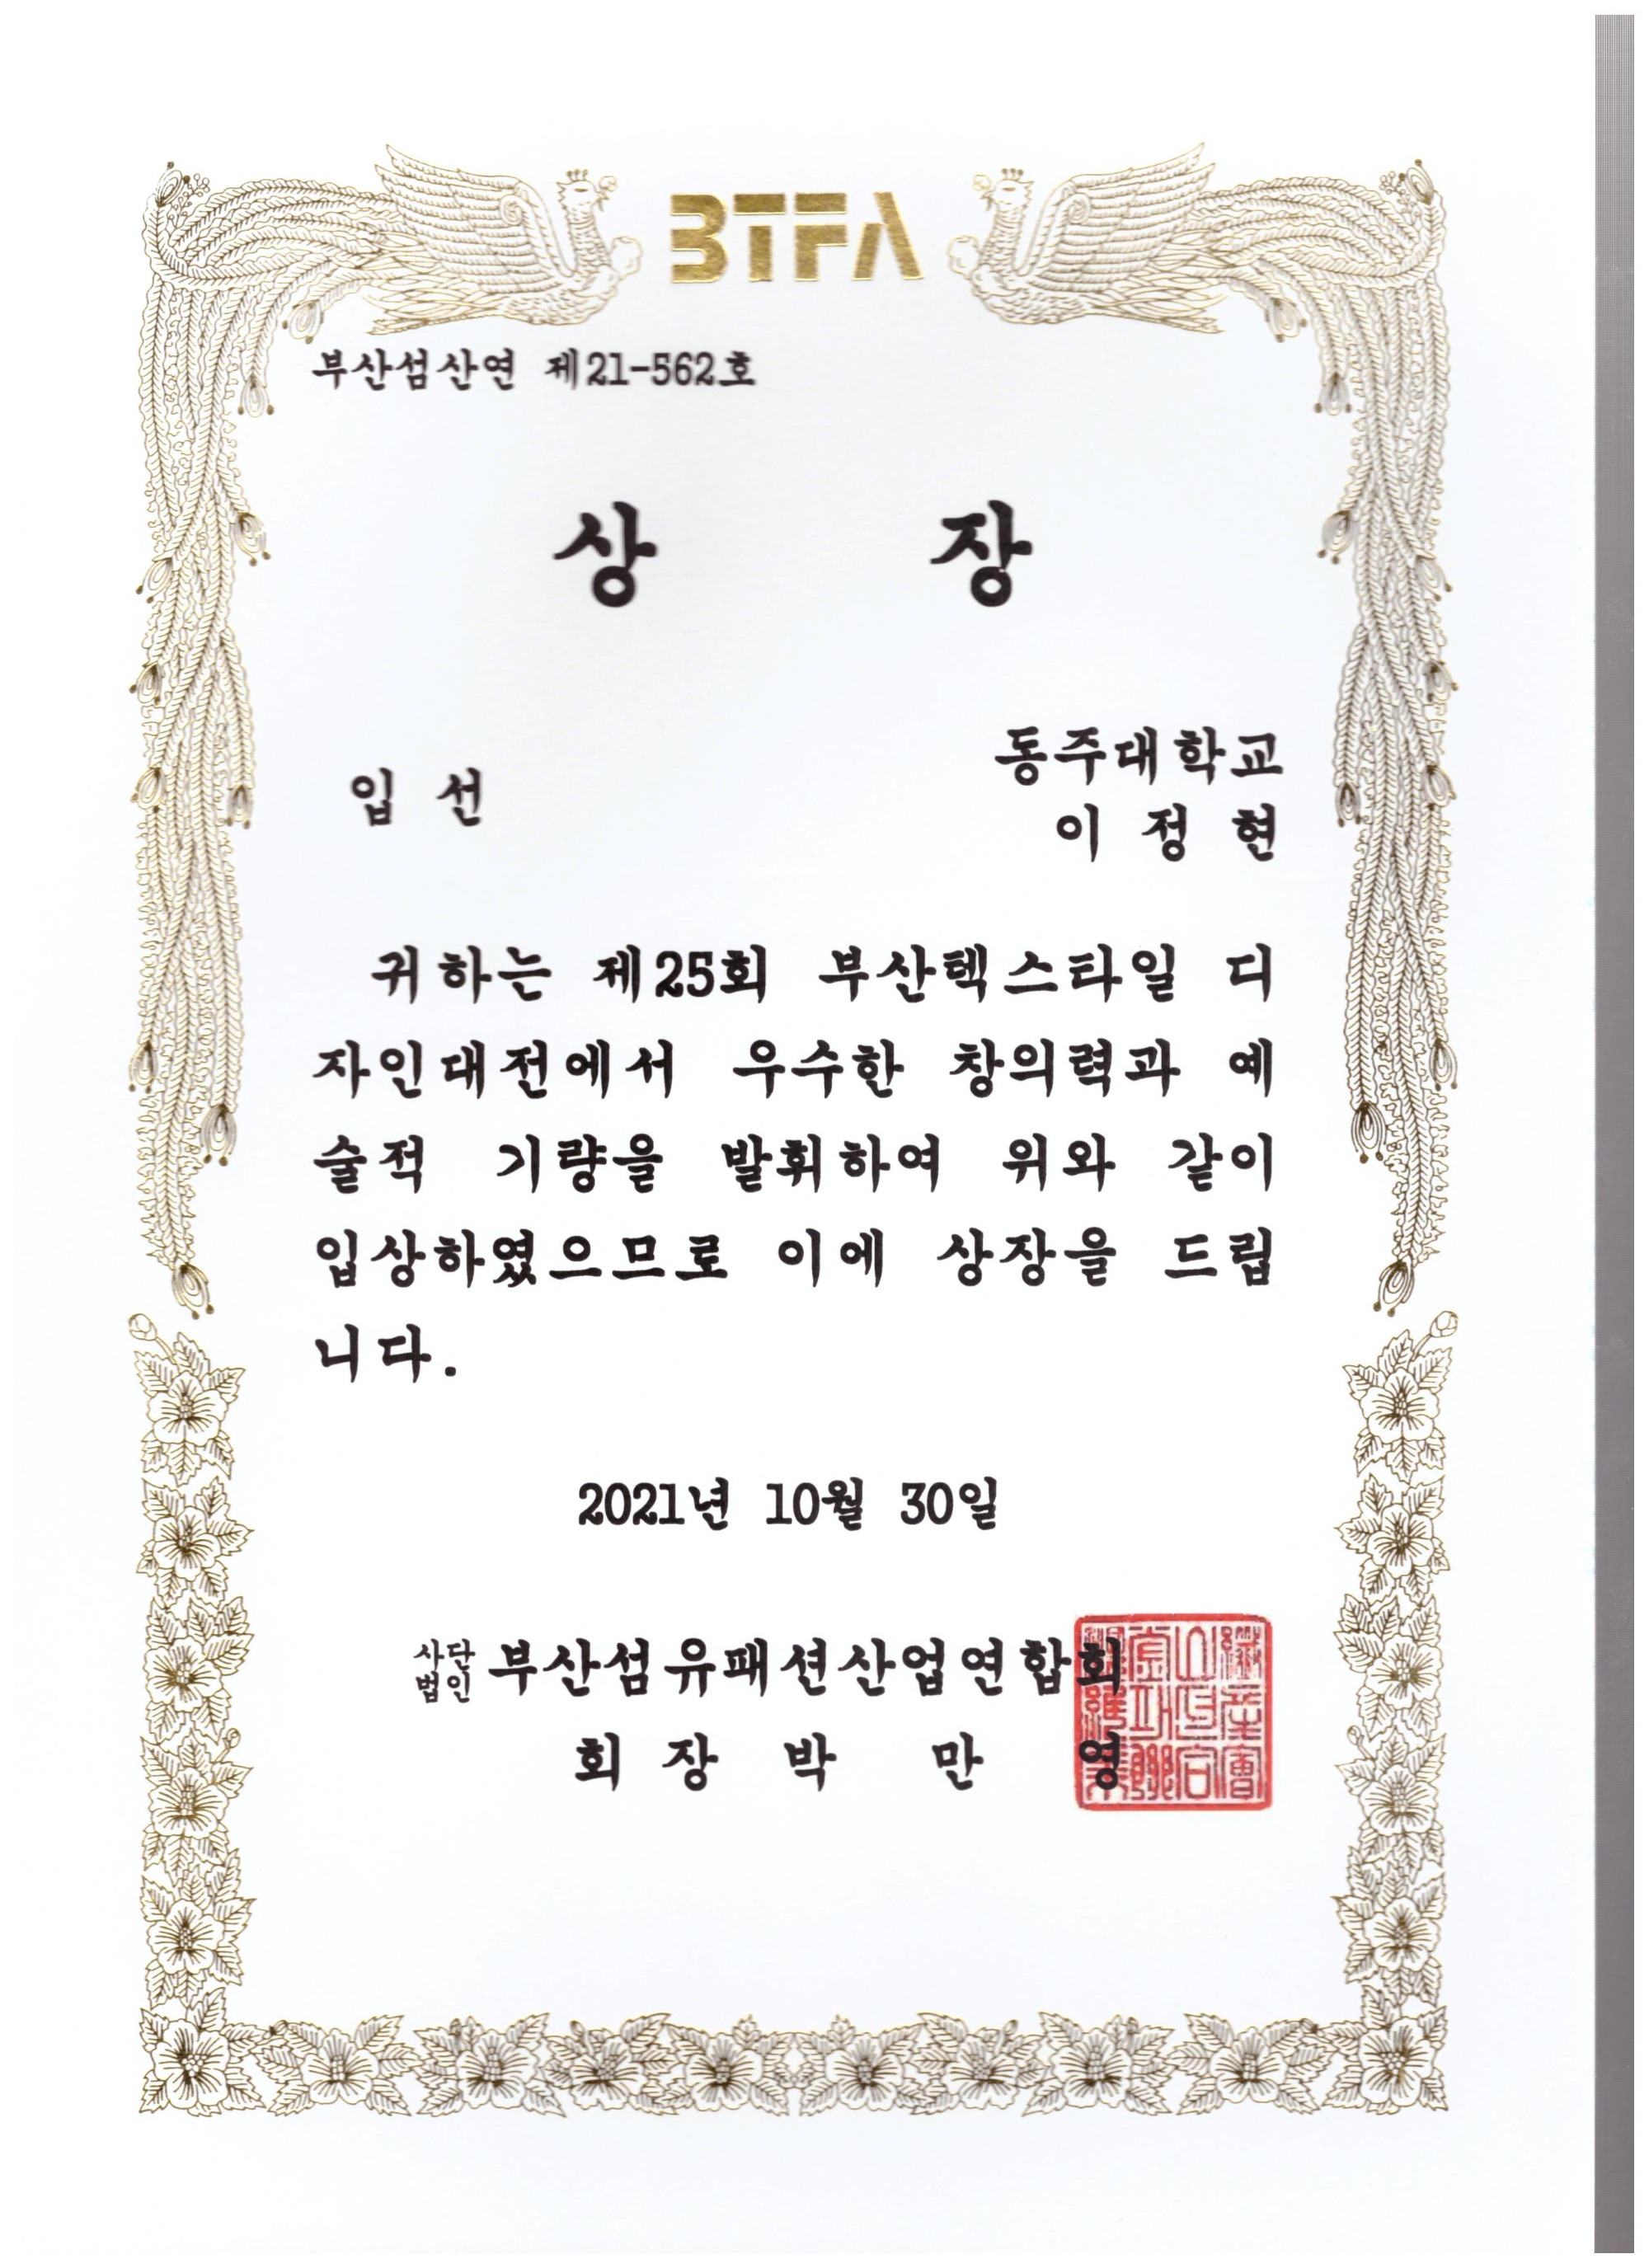 BTFA
부산섬산연 제21-562호
상 장
입 선
동주대학교
이 정 현
귀하는 제25회 부산텍스타일 디
자인대전에서 우수한 창의력과 예
술적 기량을 발휘하여 위와 같이
입상하였으므로 이에 상장을 드립
니다.
2021년 10월 30일
사단법인 부산섬유패션산업연합회
회 장 박 만 영